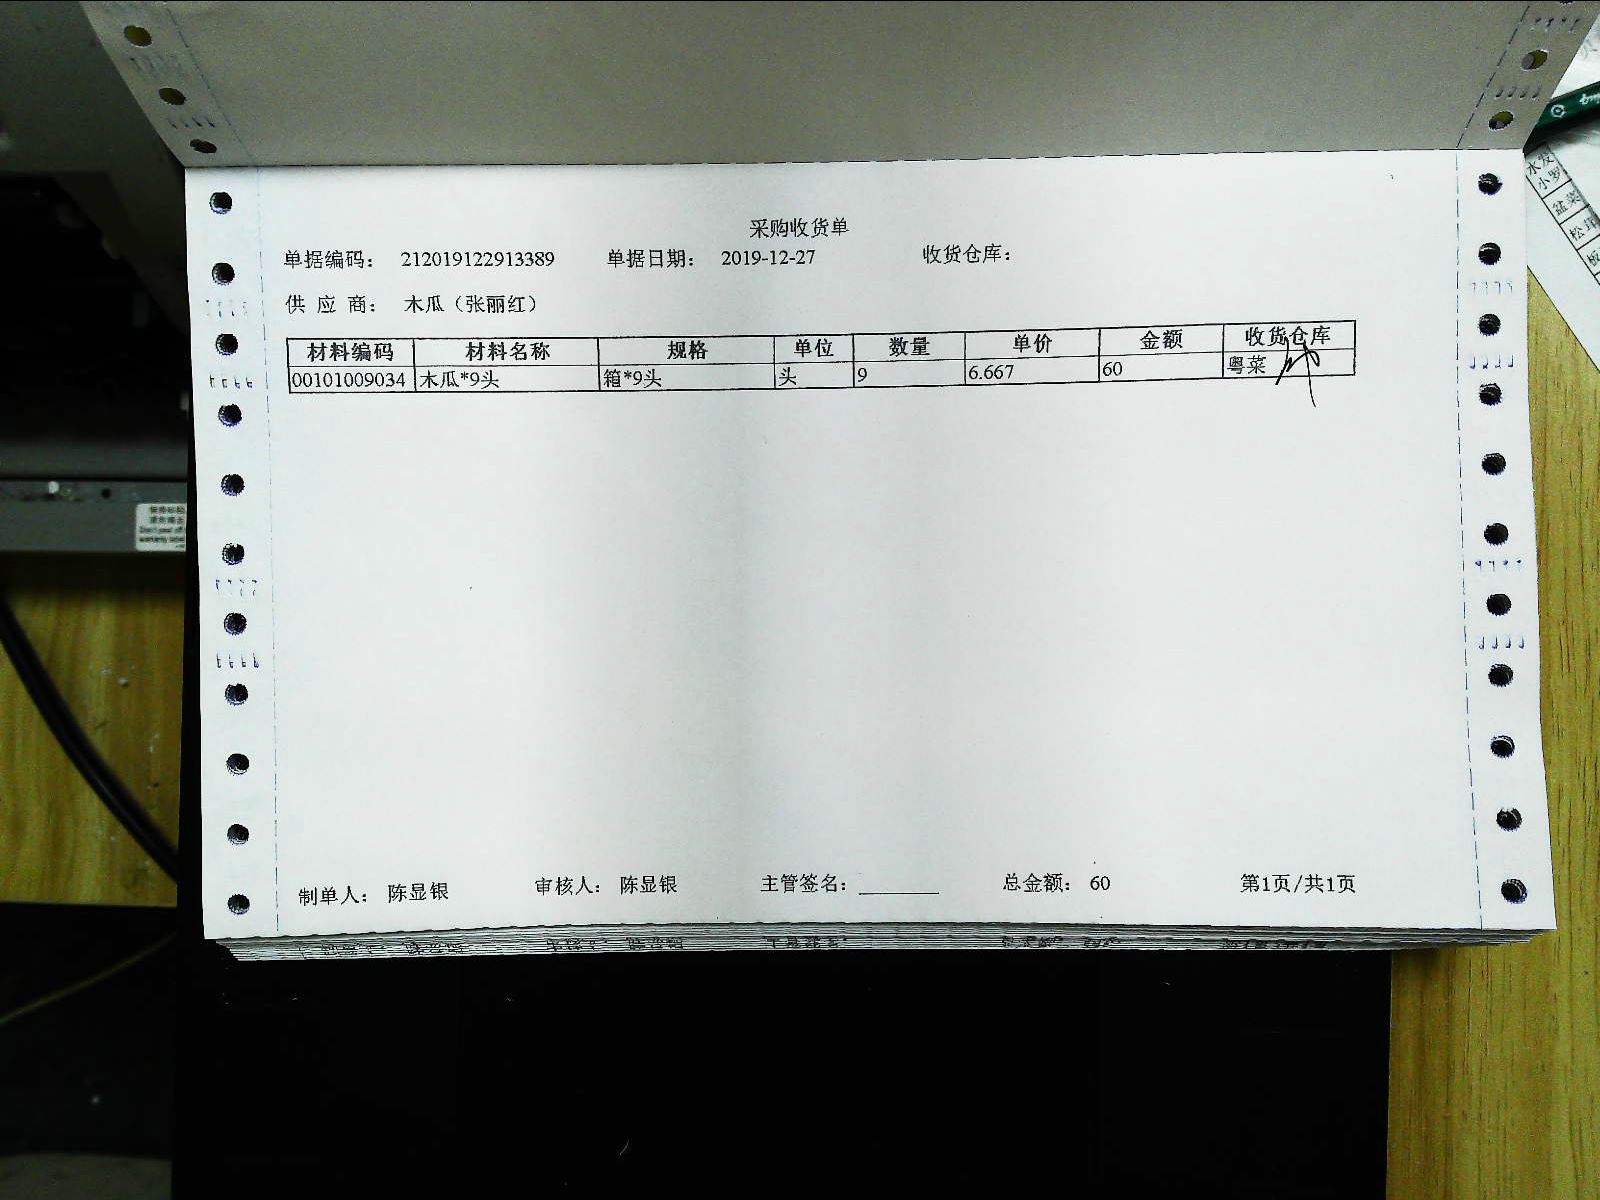 采购收货单
单据编码： 212019122913389 单据日期： 2019-12-27 收货仓库：
供 应 商： 木瓜（张丽红）
材料编码 材料名称 规格 单位 数量 单价 金额 收货仓库
00101009034 木瓜*9头 箱*9头 头 9 6.667 60 粤菜
制单人： 陈显银 审核人： 陈显银 主管签名： 总金额： 60 第1页/共1页
水发
小罗
盆菜
松茸
板